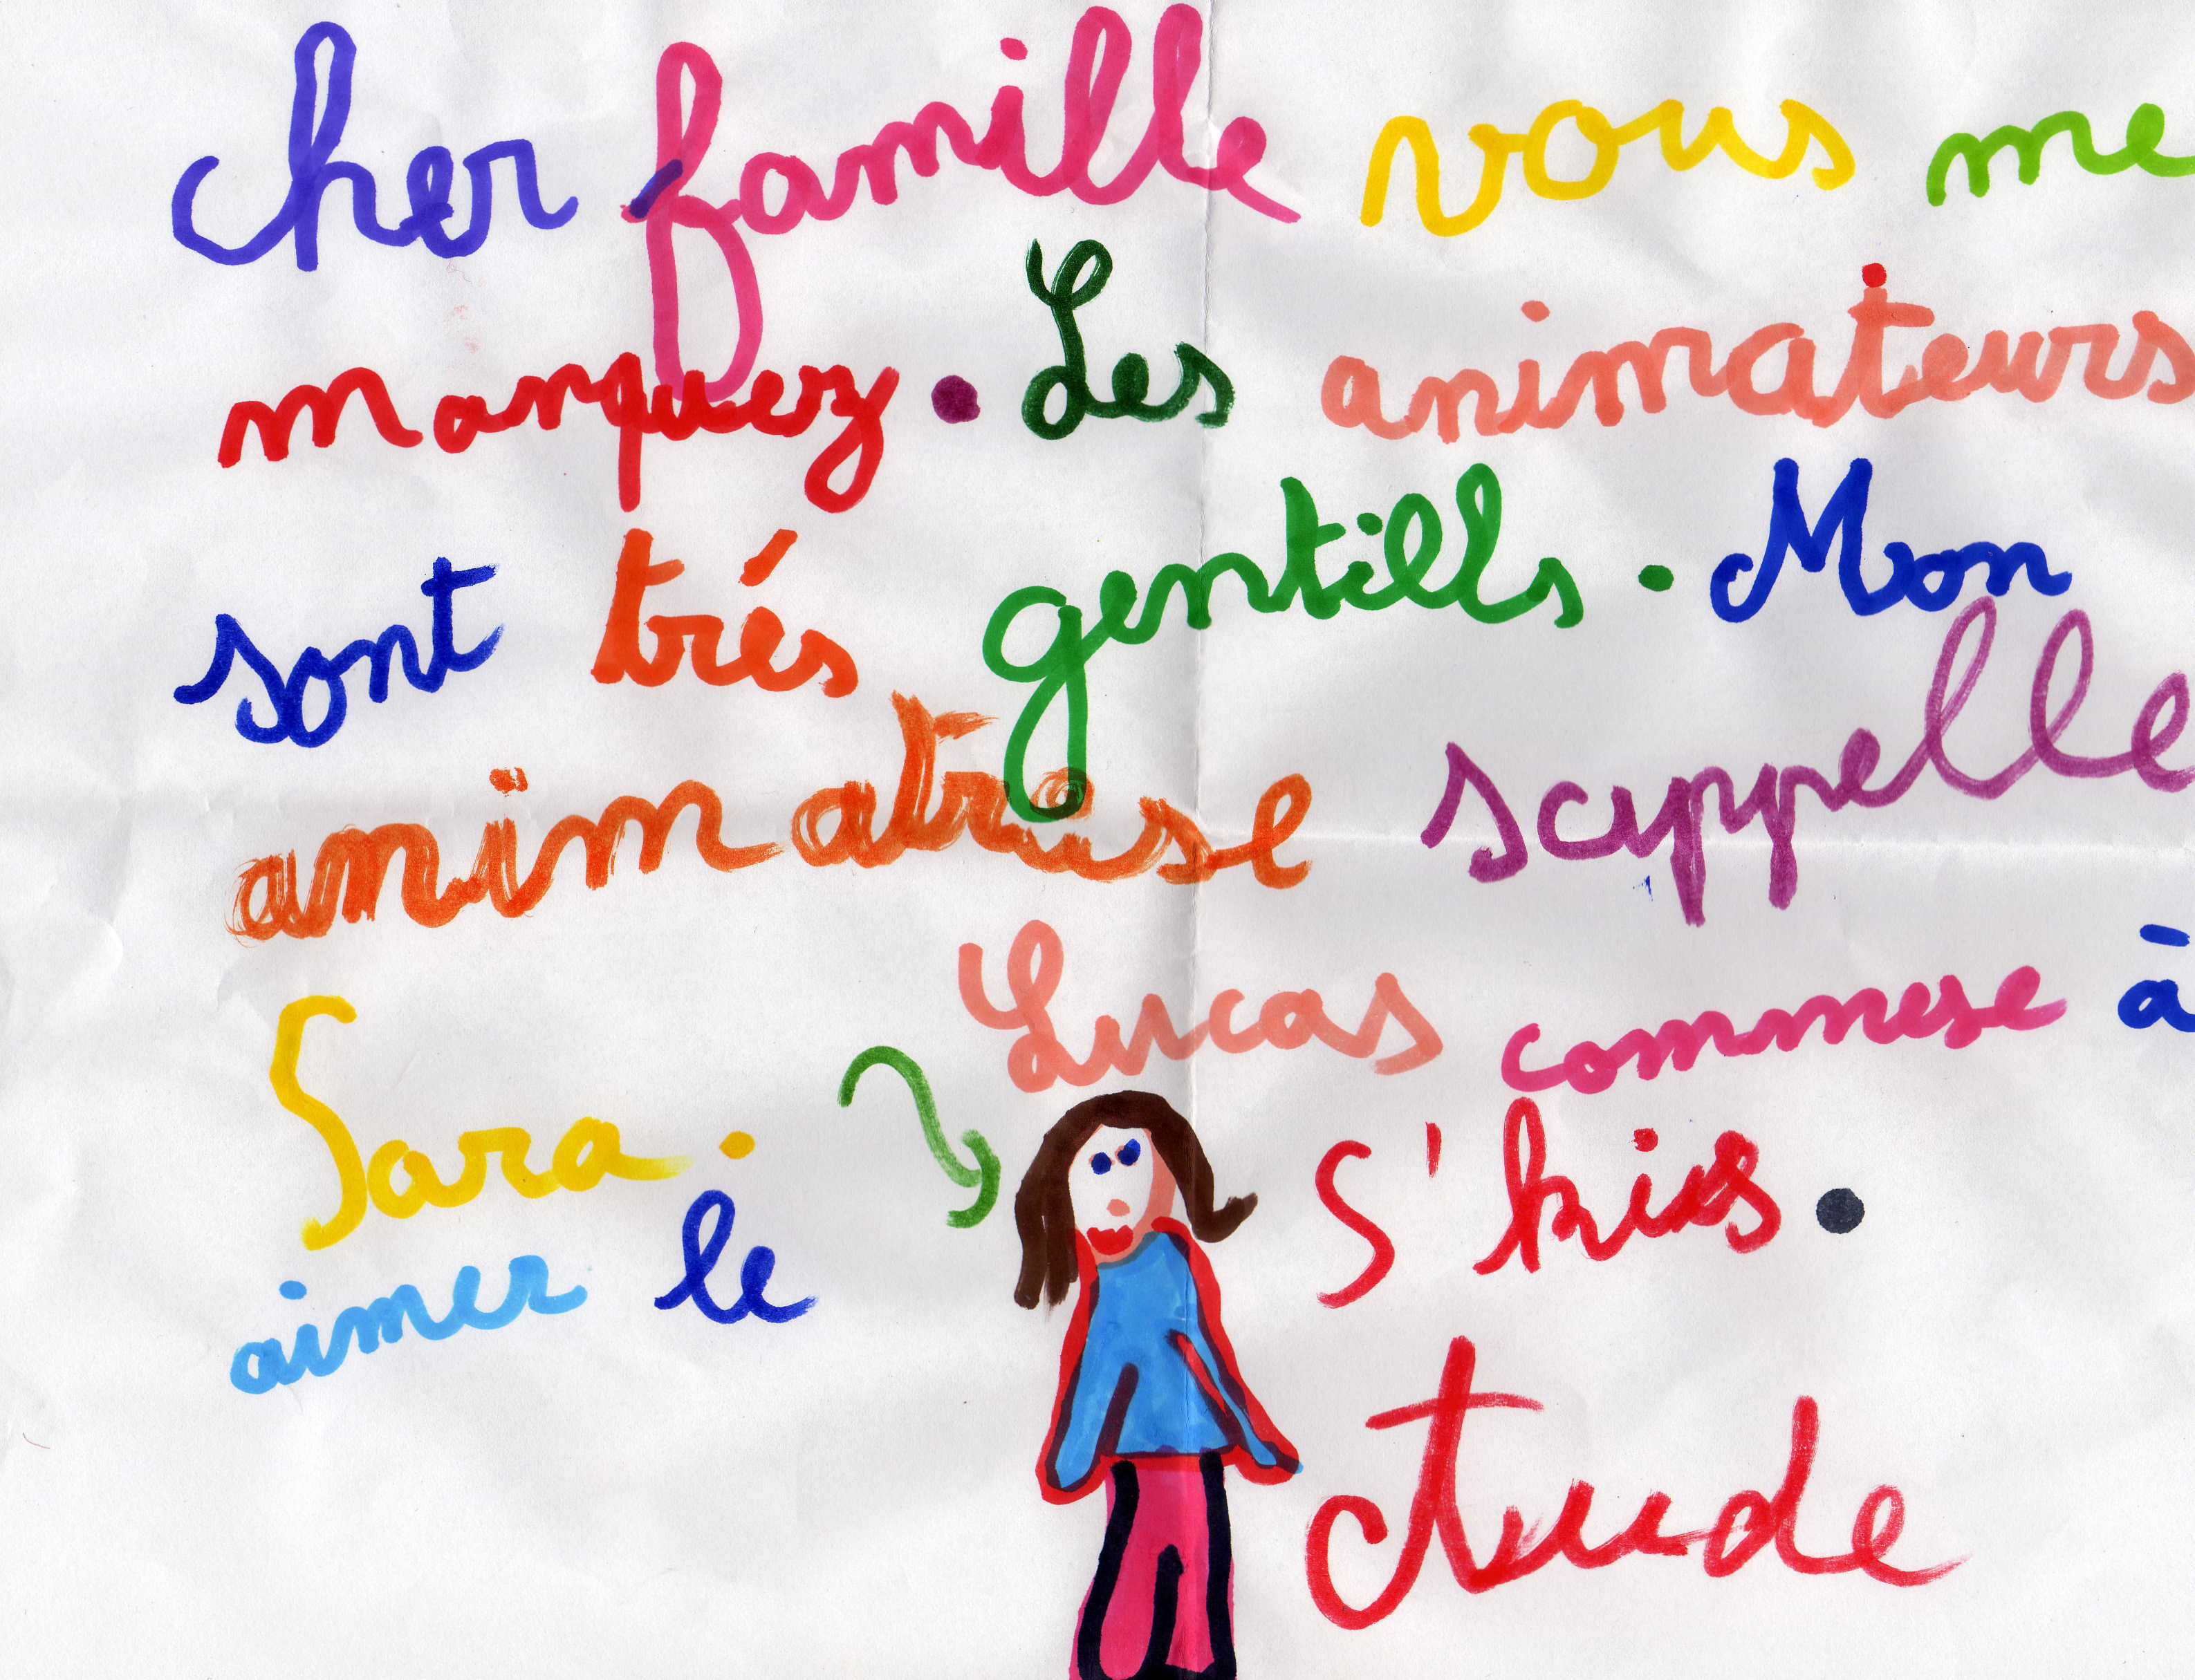 cher famille vous me
manquez . Les animateurs
sont trés gentills . Mon
animatruse sappelle
Sara . Lucas commese à
aimer le S'kis .
Aude